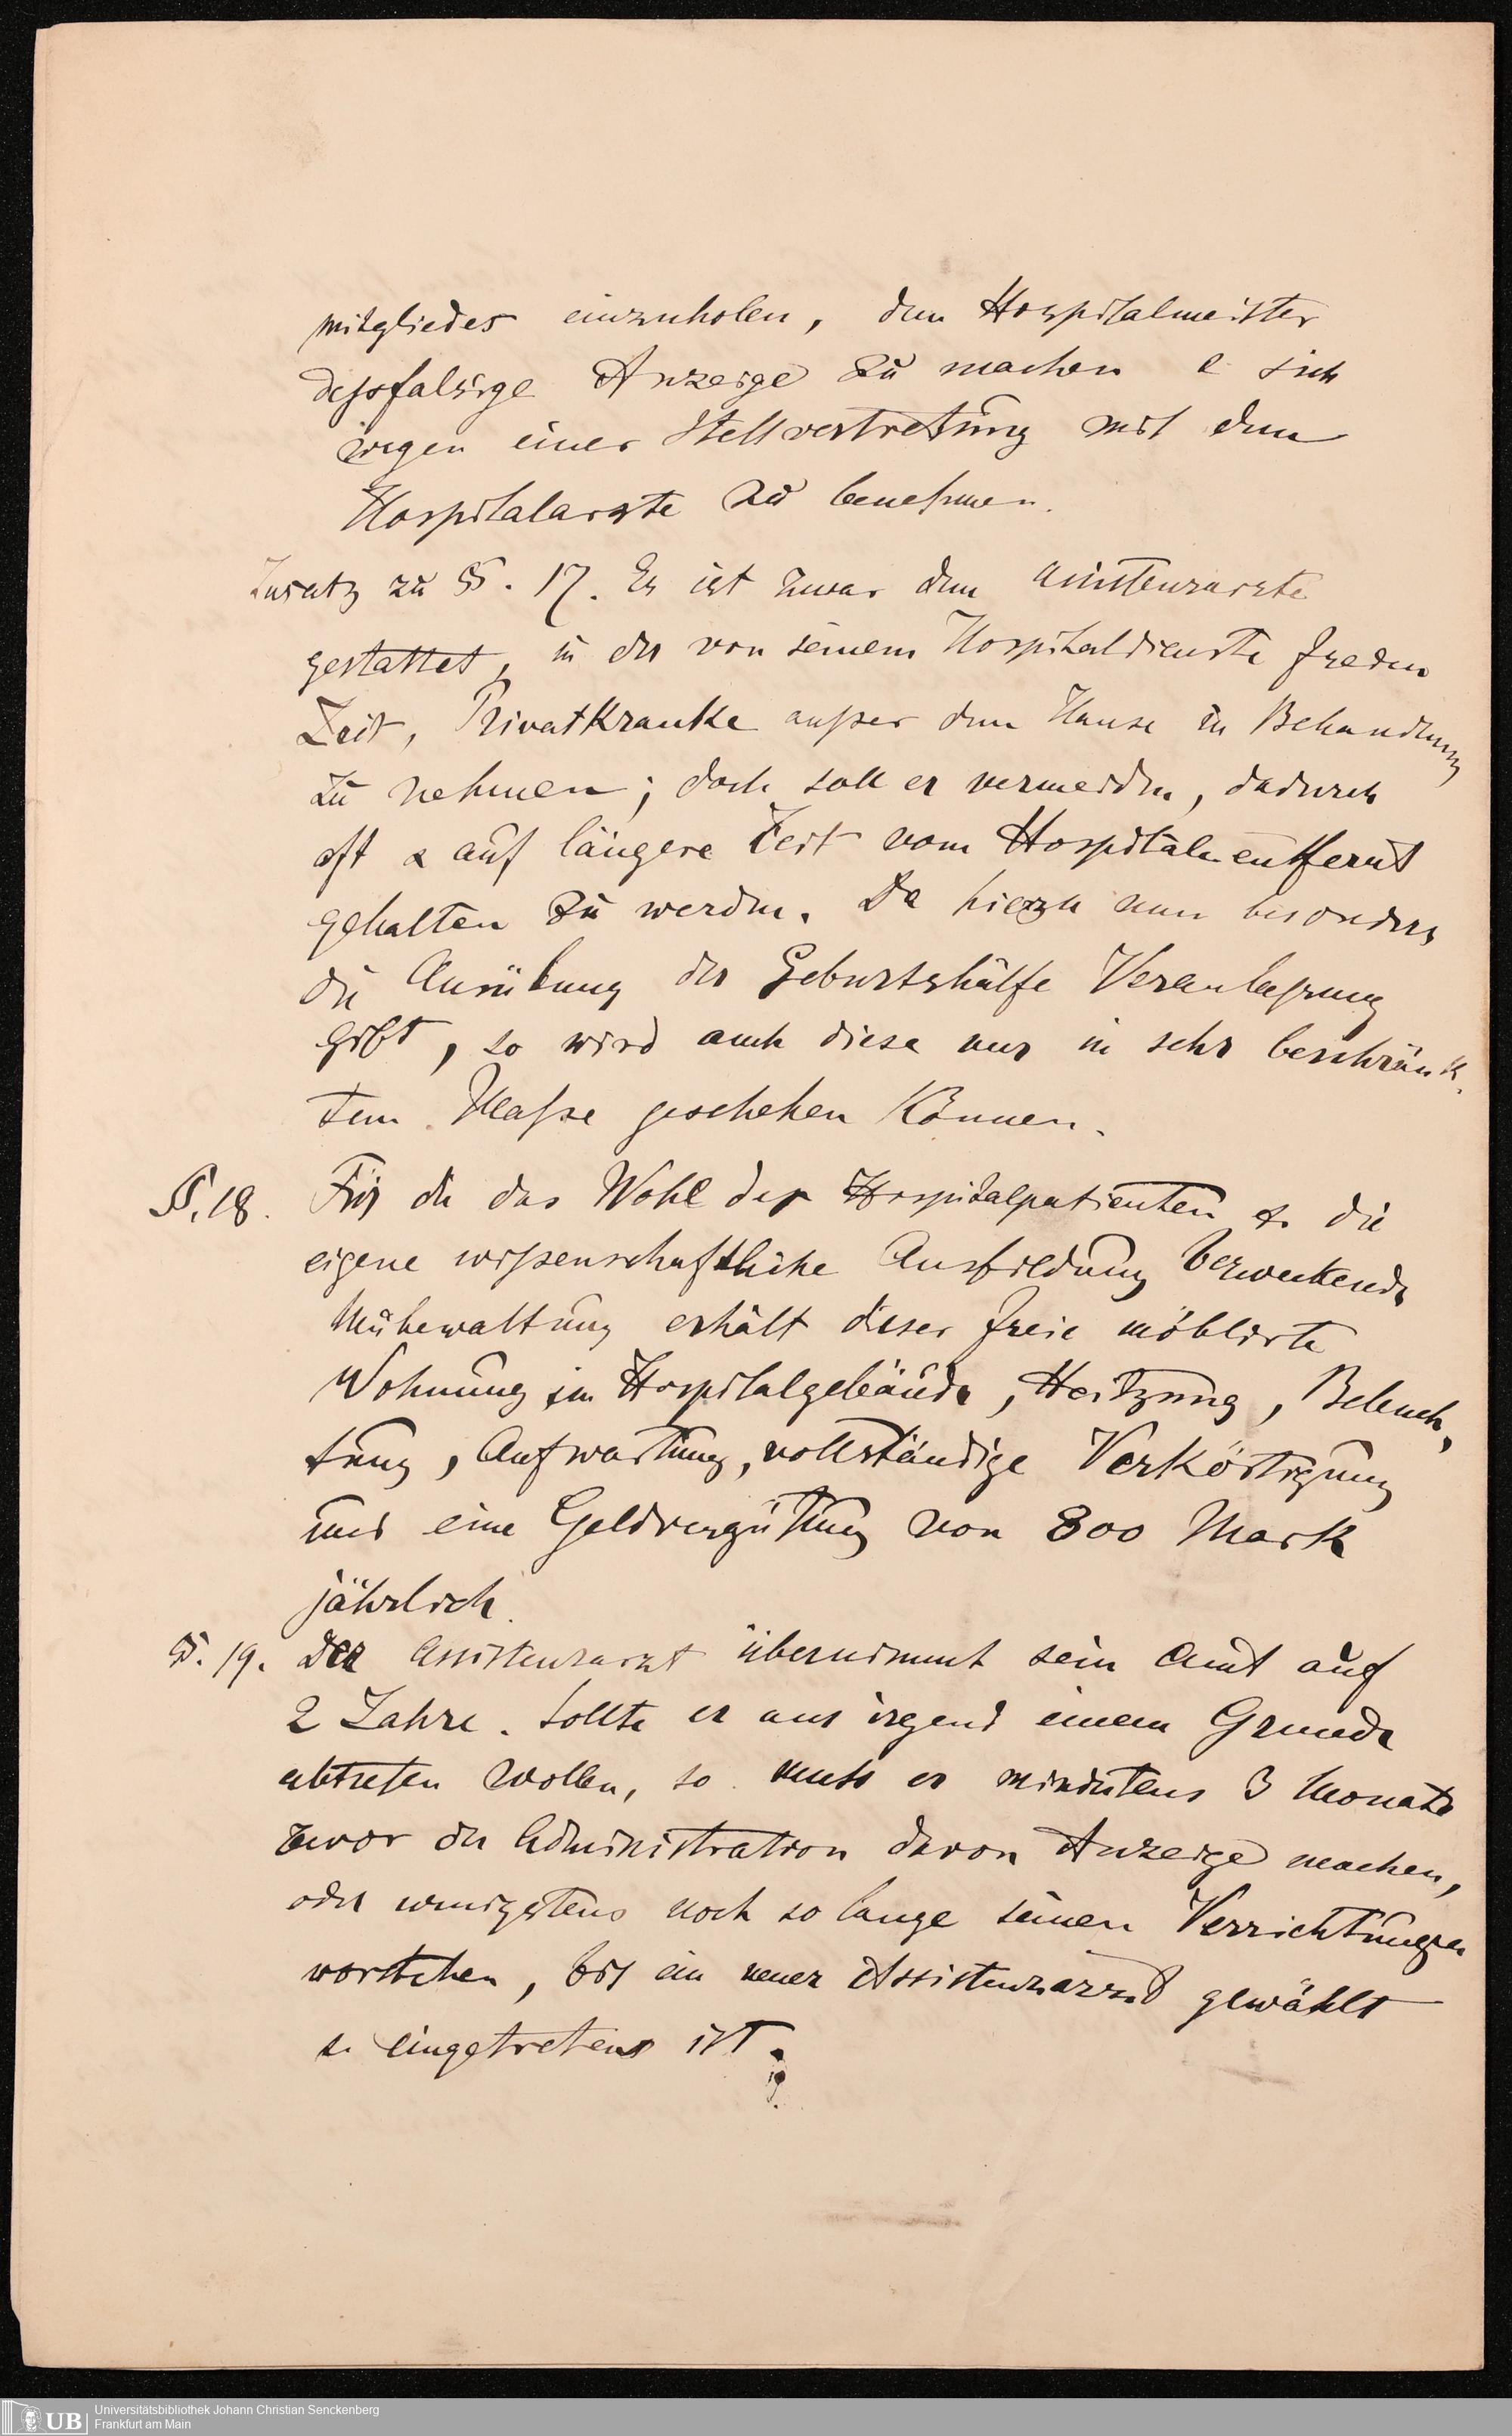 mitgliedes einzuholen, dem Hospitalmeister
dessfalsige Anzeige zu machen & sich
wegen einer Stellvertretung mit dem
Hospitalarzte zu benehmen.
Zusatz zu §. 17. Es ist zwar dem Assistenzarzte
gestattet, in der von seinem Hospitaldienste freien
Zeit, Privatkranke ausser dem Hause in Behandlung
zu nehmen; doch soll er vermeiden, dadurch
oft & auf längere Zeit vom Hospitale entfernt
gehalten zu werden. Da hierzu nun besonders
die Ausübung der Geburtshülfe Veranlassung
gibt, so wird auch diese nur in sehr beschränk-
tem Maasse geschehen können.
§. 18. Für die das Wohl der Hospitalpatienten & die
eigene wissenschaftliche Ausbildung bezweckende
Mühewaltung erhält dieser freie möblirte
Wohnung im Hospitalgebäude, Heitzung, Beleuch-
tung, Aufwartung, vollständige Verköstigung
und eine Geldvergütung von 800 Mark
jährlich.
§. 19. Der Assistenzarzt übernimmt sein Amt auf
2 Jahre. Sollte er aus irgend einem Grunde
abtreten wollen, so muss er mindstens 3 Monate
zuvor der Administration davon Anzeige machen,
oder wenigstens noch so lange seinen Verrichtungen
vorstehen, bis ein neuer Assistenzarzt gewählt
& eingetreten ist.